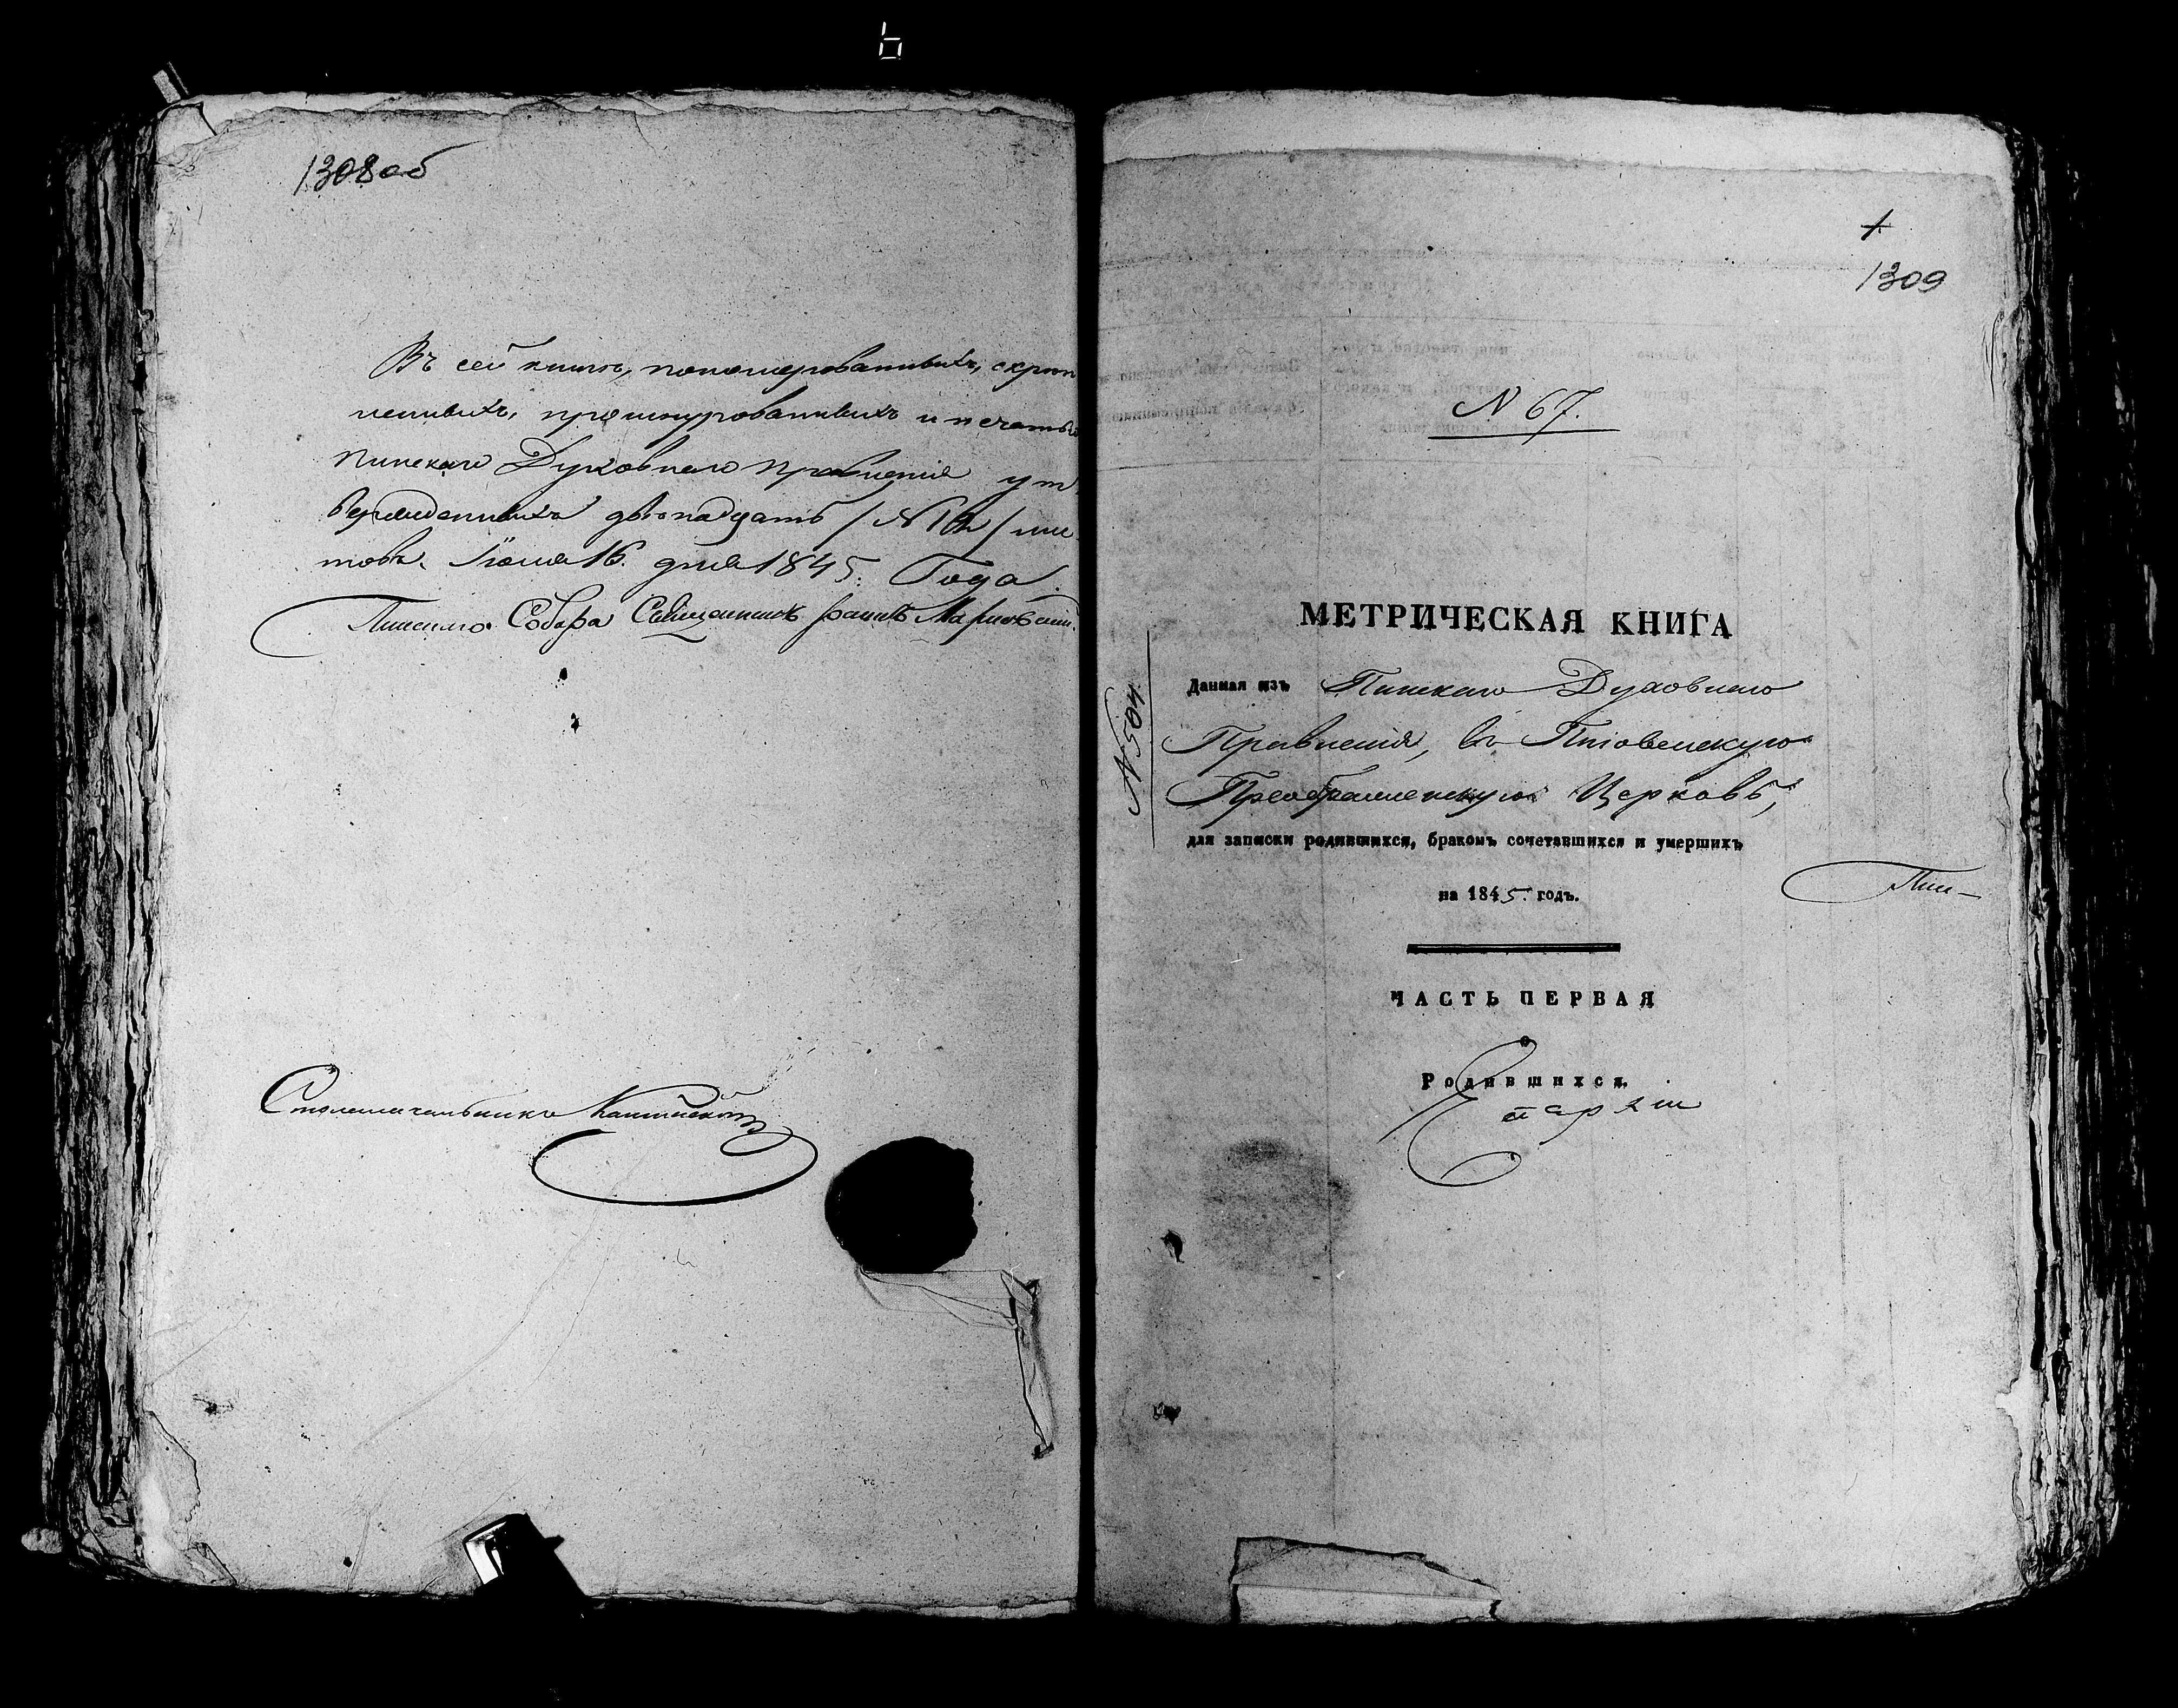 1308 об
Въ сей книгѣ, пономерованныхъ, скрѣп
ленныхъ, прошнурованныхъ и печатью
Пинскаго Духовнаго правленія ут
вержденныхъ двѣнадцать / N 12 / лис
товъ. Іюля 16. дня 1845: Года
Пинскаго Собора Священникъ
Столоначальникъ
1.
1309
N 67.
МЕТРИЧЕСКАЯ КНИГА
N 504
Данная изъ Пинскаго Духовнаго
Правленія, въ
Преображенскую Церковь,
для записки родившихся, бракомъ сочетавшихся и умершихъ
на 1845. годъ.
Пин-
ЧАСТЬ ПЕРВАЯ
о
Родившихся.